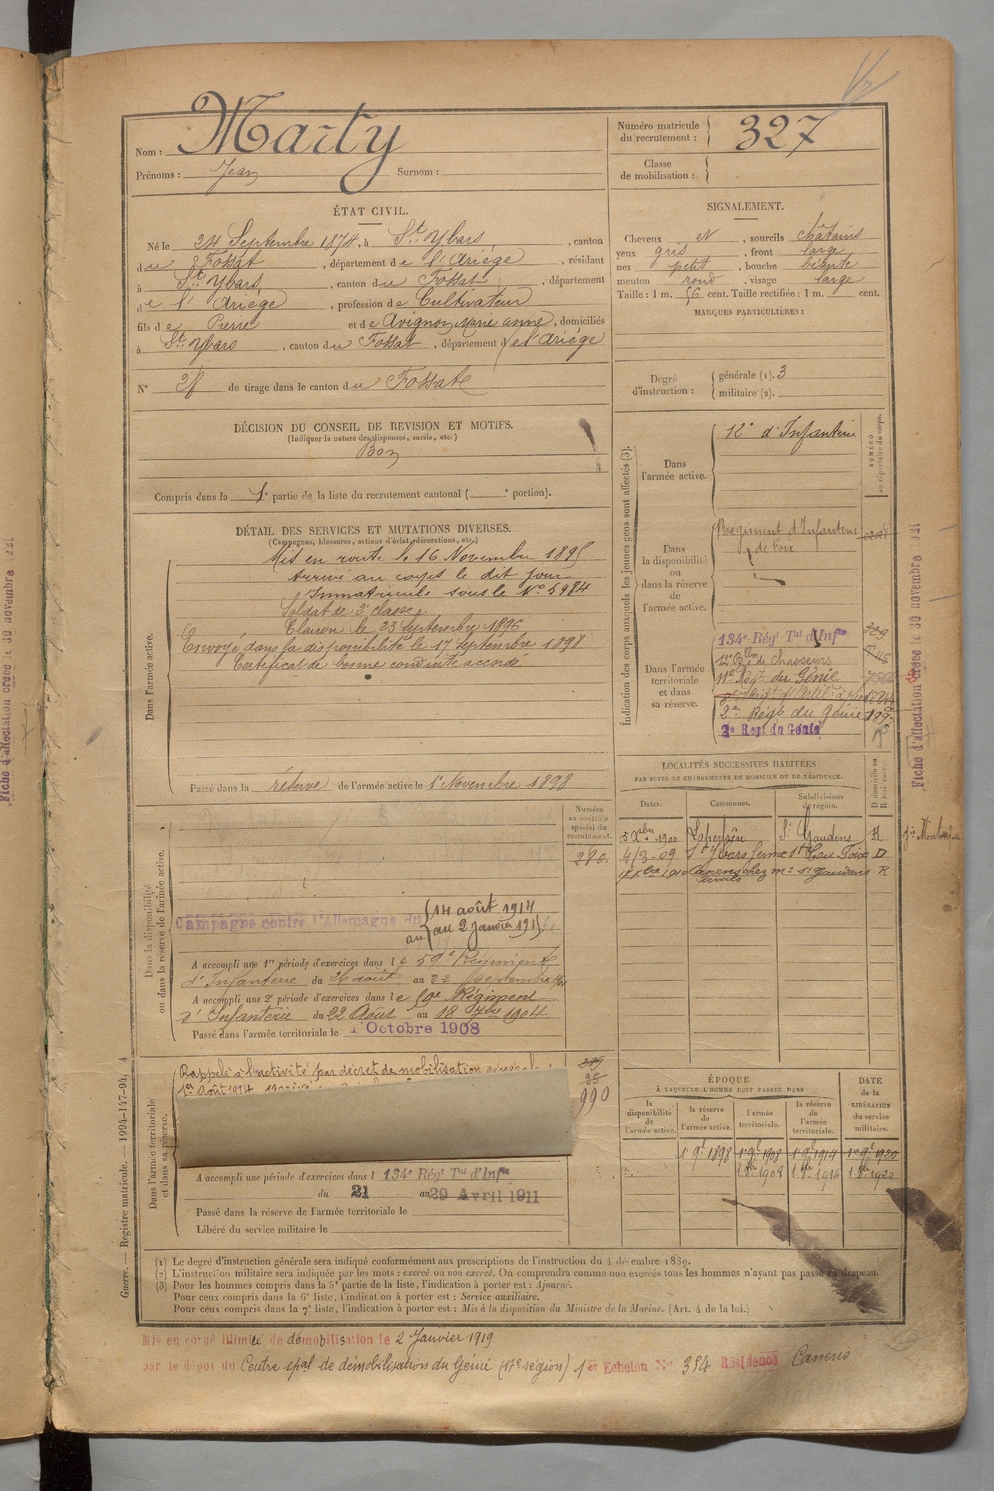 Nom : Marty
Prénoms : Jean Surnom :
Numéro matricule du recrutement : 327
Classe de mobilisation :
ÉTAT CIVIL.
Né le 24 Septembre 1874, à St Ybars, canton
du Fossat, département de l'Ariège, résidant
à St Ybars, canton du Fossat, département
de l'Ariège, profession de Cultivateur
fils de Pierre et de Avignon Marie anne, domiciliés
à St Ybars, canton du Fossat, département de l'Ariège
N° de tirage dans le canton du Fossat
SIGNALEMENT.
Cheveux et, sourcils châtains
yeux gris, front large
nez petit, bouche béante
menton rond, visage large
Taille : 1 m. 56 cent. Taille rectifiée : 1 m. cent.
MARQUES PARTICULIÈRES :
Degré d'instruction : générale (1). 3
militaire (2).
DÉCISION DU CONSEIL DE REVISION ET MOTIFS.
(Indiquer la nature des dispenses, sursis, etc.)
Bon
Compris dans la 1e partie de la liste du recrutement cantonal ( e portion).
DÉTAIL DES SERVICES ET MUTATIONS DIVERSES.
(Campagnes, blessures, actions d'éclat, décorations, etc.)
Dans l'armée active.
Mis en route le 16 Novembre 1895
Arrivé au corps le dit jour
Immatriculé sous le N° 5984
Soldat de 2e classe
Clairon le 23 septembre 1896
Envoyé dans la disponibilité le 17 septembre 1898
Certificat de bonne conduite accordé
Passé dans la réserve de l'armée active le 1er Novembre 1898
Indication des corps auxquels les jeunes gens sont affectés (3).
NUMÉRO au répertoire du corps.
Dans l'armée active. 12e d'Infanterie
Dans la disponibilité ou dans la réserve de l'armée active.
Régiment d'Infanterie
de Foix
Dans l'armée territoriale et dans sa réserve.
134e Régt Tal d'Infie
12e Bon de Chasseurs
11e Régt du Génie
2me Régt du Génie
2e Regt du Génie
LOCALITÉS SUCCESSIVES HABITÉES
PAR SUITE DE CHANGEMENTS DE DOMICILE OU DE RÉSIDENCE.
Dates. Communes. Subdivisions de région. D domicile ou R résidence.
5 Xbre 1900 Lapeyrère St Gaudens R
4/3-09 St Ybars Foix D
St Gaudens R
Dans la disponibilité ou dans la réserve de l'armée active.
Numéro au contrôle spécial du recrutement.
280.
Campagne contre l'Allemagne du 14 août 1914
au 2 Janvier 191
A accompli une 1re période d'exercices dans le 59e Régiment
d'Infanterie du 26 août au 22 septembre
A accompli une 2e période d'exercices dans le Régiment
d'Infanterie du 22 Août au 18 7bre 1904
Passé dans l'armée territoriale le 1 Octobre 1908
Dans l'armée territoriale et dans sa réserve.
Rappelé à l'activité par décret de mobilisation générale
1er Août 1914
990
A accompli une période d'exercices dans l 134e Régt Tal d'Infie
du 21 au 29 Avril 1911
Passé dans la réserve de l'armée territoriale le
Libéré du service militaire le
ÉPOQUE
À LAQUELLE L'HOMME DOIT PASSER DANS
la disponibilité de l'armée active. la réserve de l'armée active. l'armée territoriale. la réserve de l'armée territoriale.
DATE de la LIBÉRATION du service militaire.
1 9b 1898 1 9b 1908 1 9b 1914 1er 9b 1920
(1) Le degré d'instruction générale sera indiqué conformément aux prescriptions de l'instruction du 4 décembre 1889.
(2) L'instruction militaire sera indiquée par les mots : exercé ou non exercé. On comprendra comme non exercés tous les hommes n'ayant pas passé au drapeau.
(3) Pour les hommes compris dans la 5e partie de la liste, l'indication à porter est : Ajourné.
Pour ceux compris dans la 6e liste, l'indication à porter est : Service auxiliaire.
Pour ceux compris dans la 7e liste, l'indication à porter est : Mis à la disposition du Ministre de la Marine. (Art. 4 de la loi.)
Guerre. — Registre matricule. — 1994-147-94. 4
Mis en congé illimité de démobilisation le 2 Janvier 1919
par le dépôt du Centre spal de démobilisation du Génie (17e région) 1er Echelon N° 384 Résidence Canens
Fiche d'affectation créée le 30 novembre 1921
Fiche d'affectation créée le 30 novembre 1921